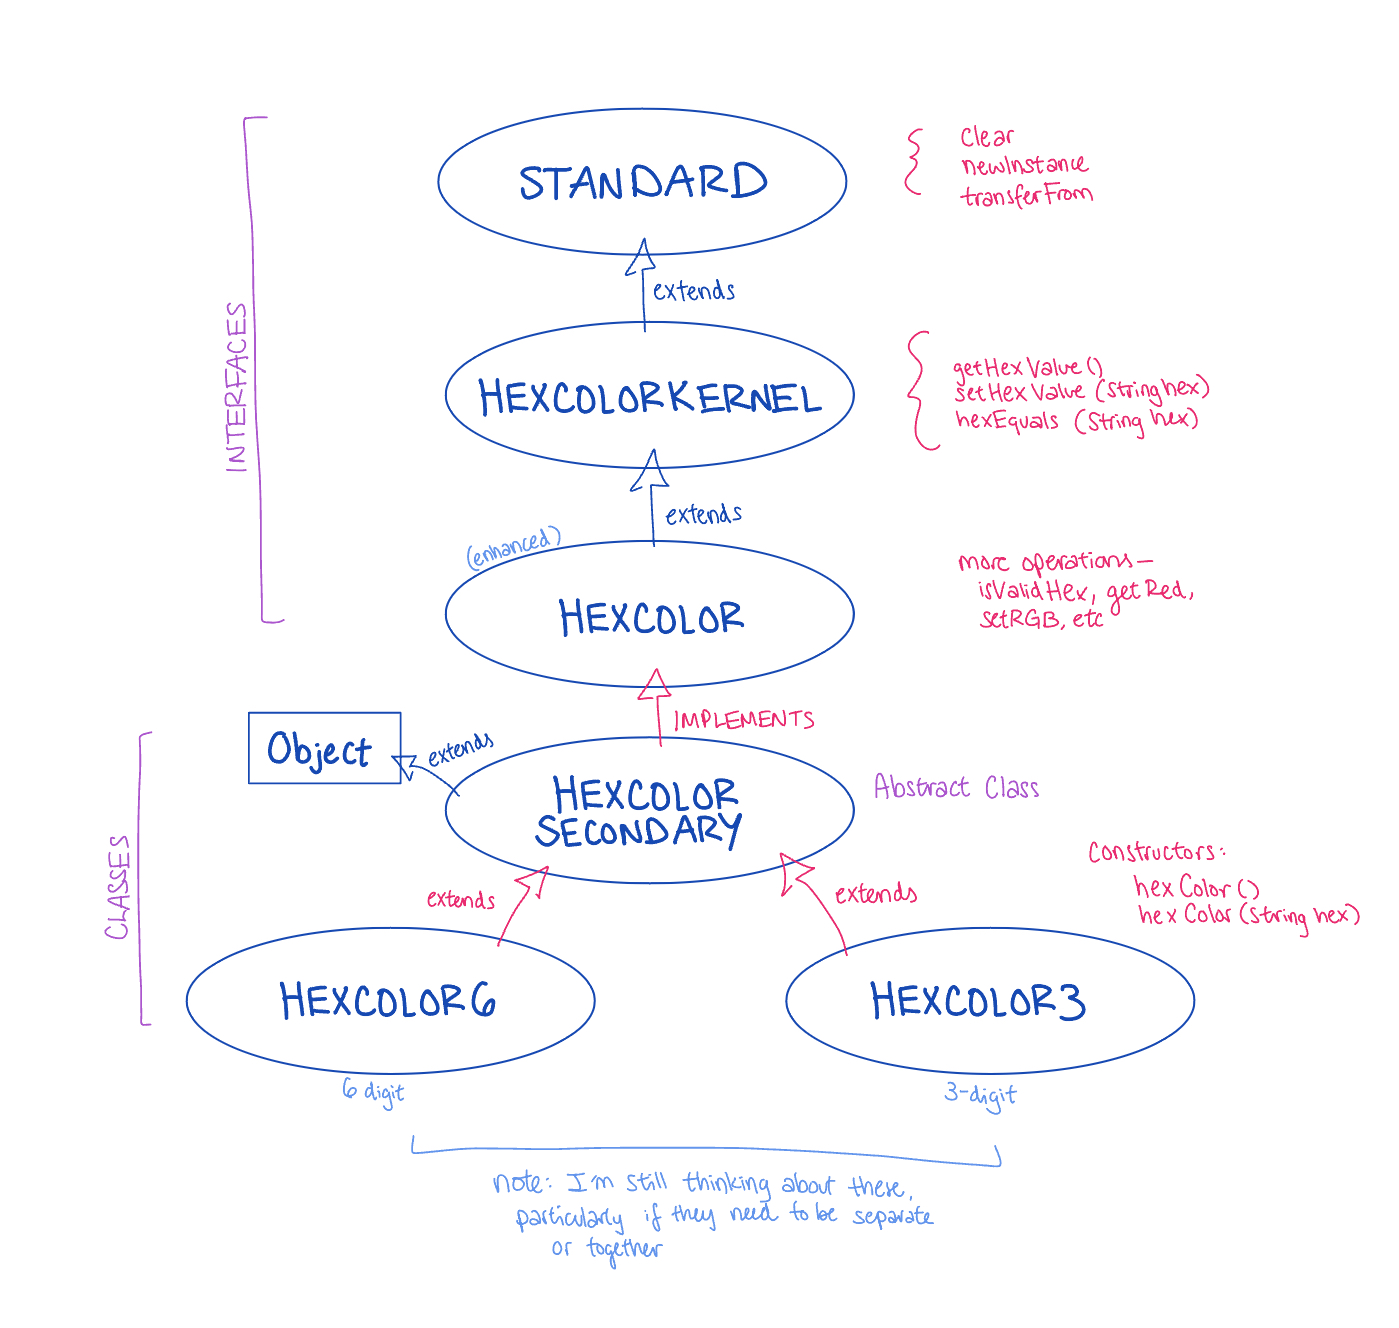 STANDARD
{ Clear
newInstance
transferFrom
extends
INTERFACES
HEXCOLORKERNEL
{ getHexValue()
setHexValue (String hex)
hexEquals (String hex)
extends
(enhanced)
HEXCOLOR
more operations—
isValidHex, getRed,
setRGB, etc
IMPLEMENTS
Object
extends
HEXCOLOR
SECONDARY
Abstract Class
CLASSES
Constructors:
hexColor()
hexColor(String hex)
extends
extends
HEXCOLOR6
HEXCOLOR3
6 digit
3-digit
note: I'm still thinking about these,
particularly if they need to be separate
or together